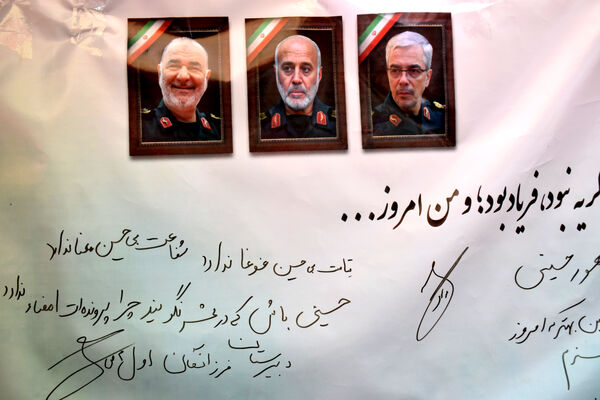 گریه نبود، فریاد بود؛ و من امروز...
شفاعت بی حسین معنا ندارد
قیامت بی حسین غوغا ندارد
حسینی باش که در محشر نگویند چرا پرونده‌ات امضاء ندارد
دبیرستان فرزانگان اول
حسینی
بهتر که امروز